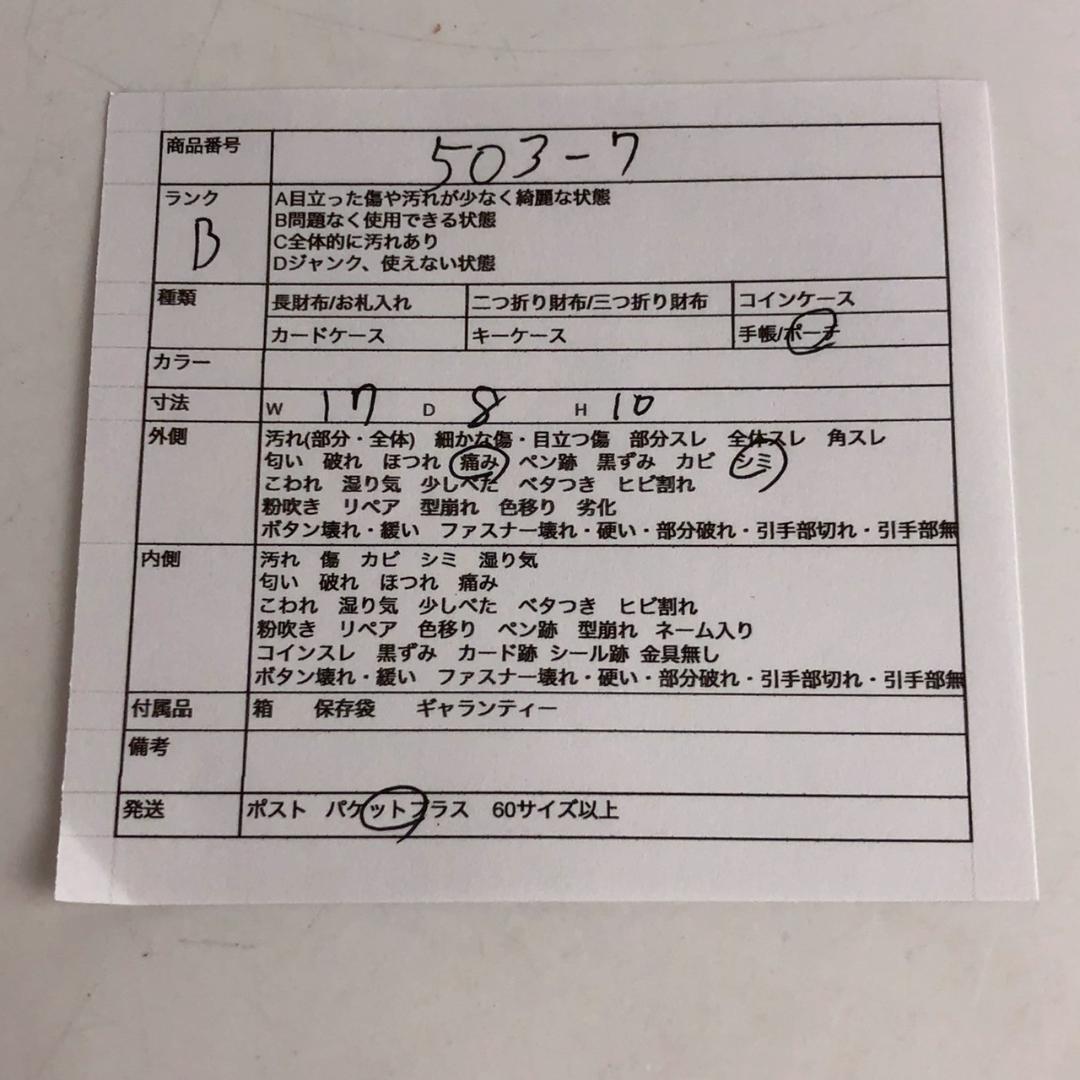 商品番号 503-7
ランク A目立った傷や汚れが少なく綺麗な状態
B B問題なく使用できる状態
C全体的に汚れあり
Dジャンク、使えない状態
種類 長財布/お札入れ 二つ折り財布/三つ折り財布 コインケース
カードケース キーケース 手帳/ポーチ
カラー
寸法 W 17 D 8 H 10
外側 汚れ(部分・全体) 細かな傷・目立つ傷 部分スレ 全体スレ 角スレ
匂い 破れ ほつれ 痛み ペン跡 黒ずみ カビ シミ
こわれ 湿り気 少しべた ベタつき ヒビ割れ
粉吹き リペア 型崩れ 色移り 劣化
ボタン壊れ・緩い ファスナー壊れ・硬い・部分破れ・引手部切れ・引手部無
内側 汚れ 傷 カビ シミ 湿り気
匂い 破れ ほつれ 痛み
こわれ 湿り気 少しべた ベタつき ヒビ割れ
粉吹き リペア 色移り ペン跡 型崩れ ネーム入り
コインスレ 黒ずみ カード跡 シール跡 金具無し
ボタン壊れ・緩い ファスナー壊れ・硬い・部分破れ・引手部切れ・引手部無
付属品 箱 保存袋 ギャランティー
備考
発送 ポスト パケットプラス 60サイズ以上